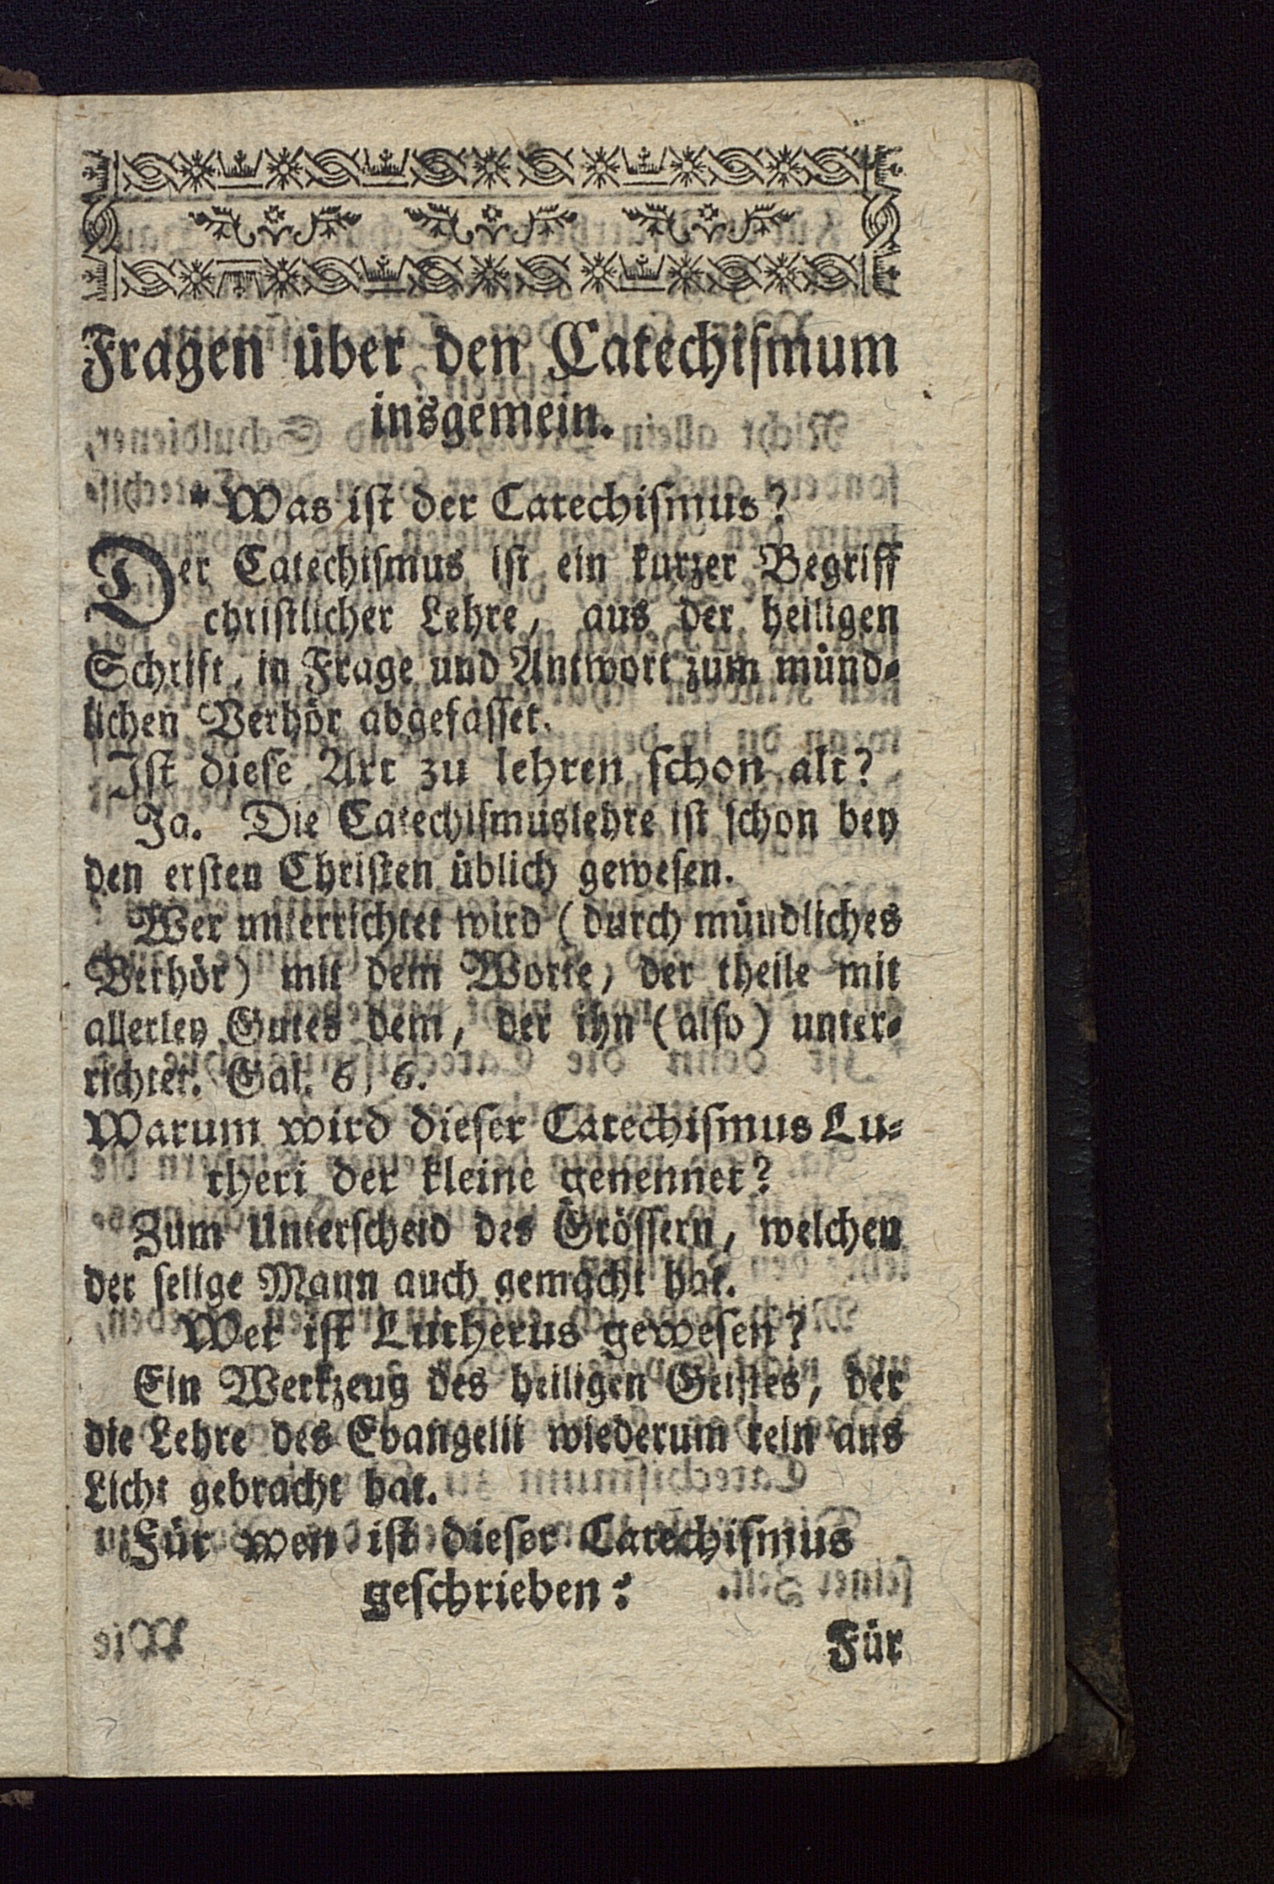 Fragen über den Catechismum
insgemein.
* Was ist der Catechismus?
Der Catechismus ist ein kurzer Begriff
christlicher Lehre, aus der heiligen
Schrift, in Frage und Antwort zum münd-
lichen Verhör abgefasset.
Ist diese Art zu lehren schon alt?
Ja. Die Catechismuslehre ist schon bey
den ersten Christen üblich gewesen.
Wer unterrichtet wird (durch mündliches
Verhör) mit dem Worte, der theile mit
allerley Gutes dem, der ihn (also) unter-
richtet. Gal. 6, 6.
Warum wird dieser Catechismus Lu-
theri der kleine genennet?
Zum Unterscheid des Grössern, welchen
der selige Mann auch gemacht hat.
Wer ist Lutherus gewesen?
Ein Werkzeug des heiligen Geistes, der
die Lehre des Evangelii wiederum rein ans
Licht gebracht hat.
Für wen ist dieser Catechismus
geschrieben?
Für